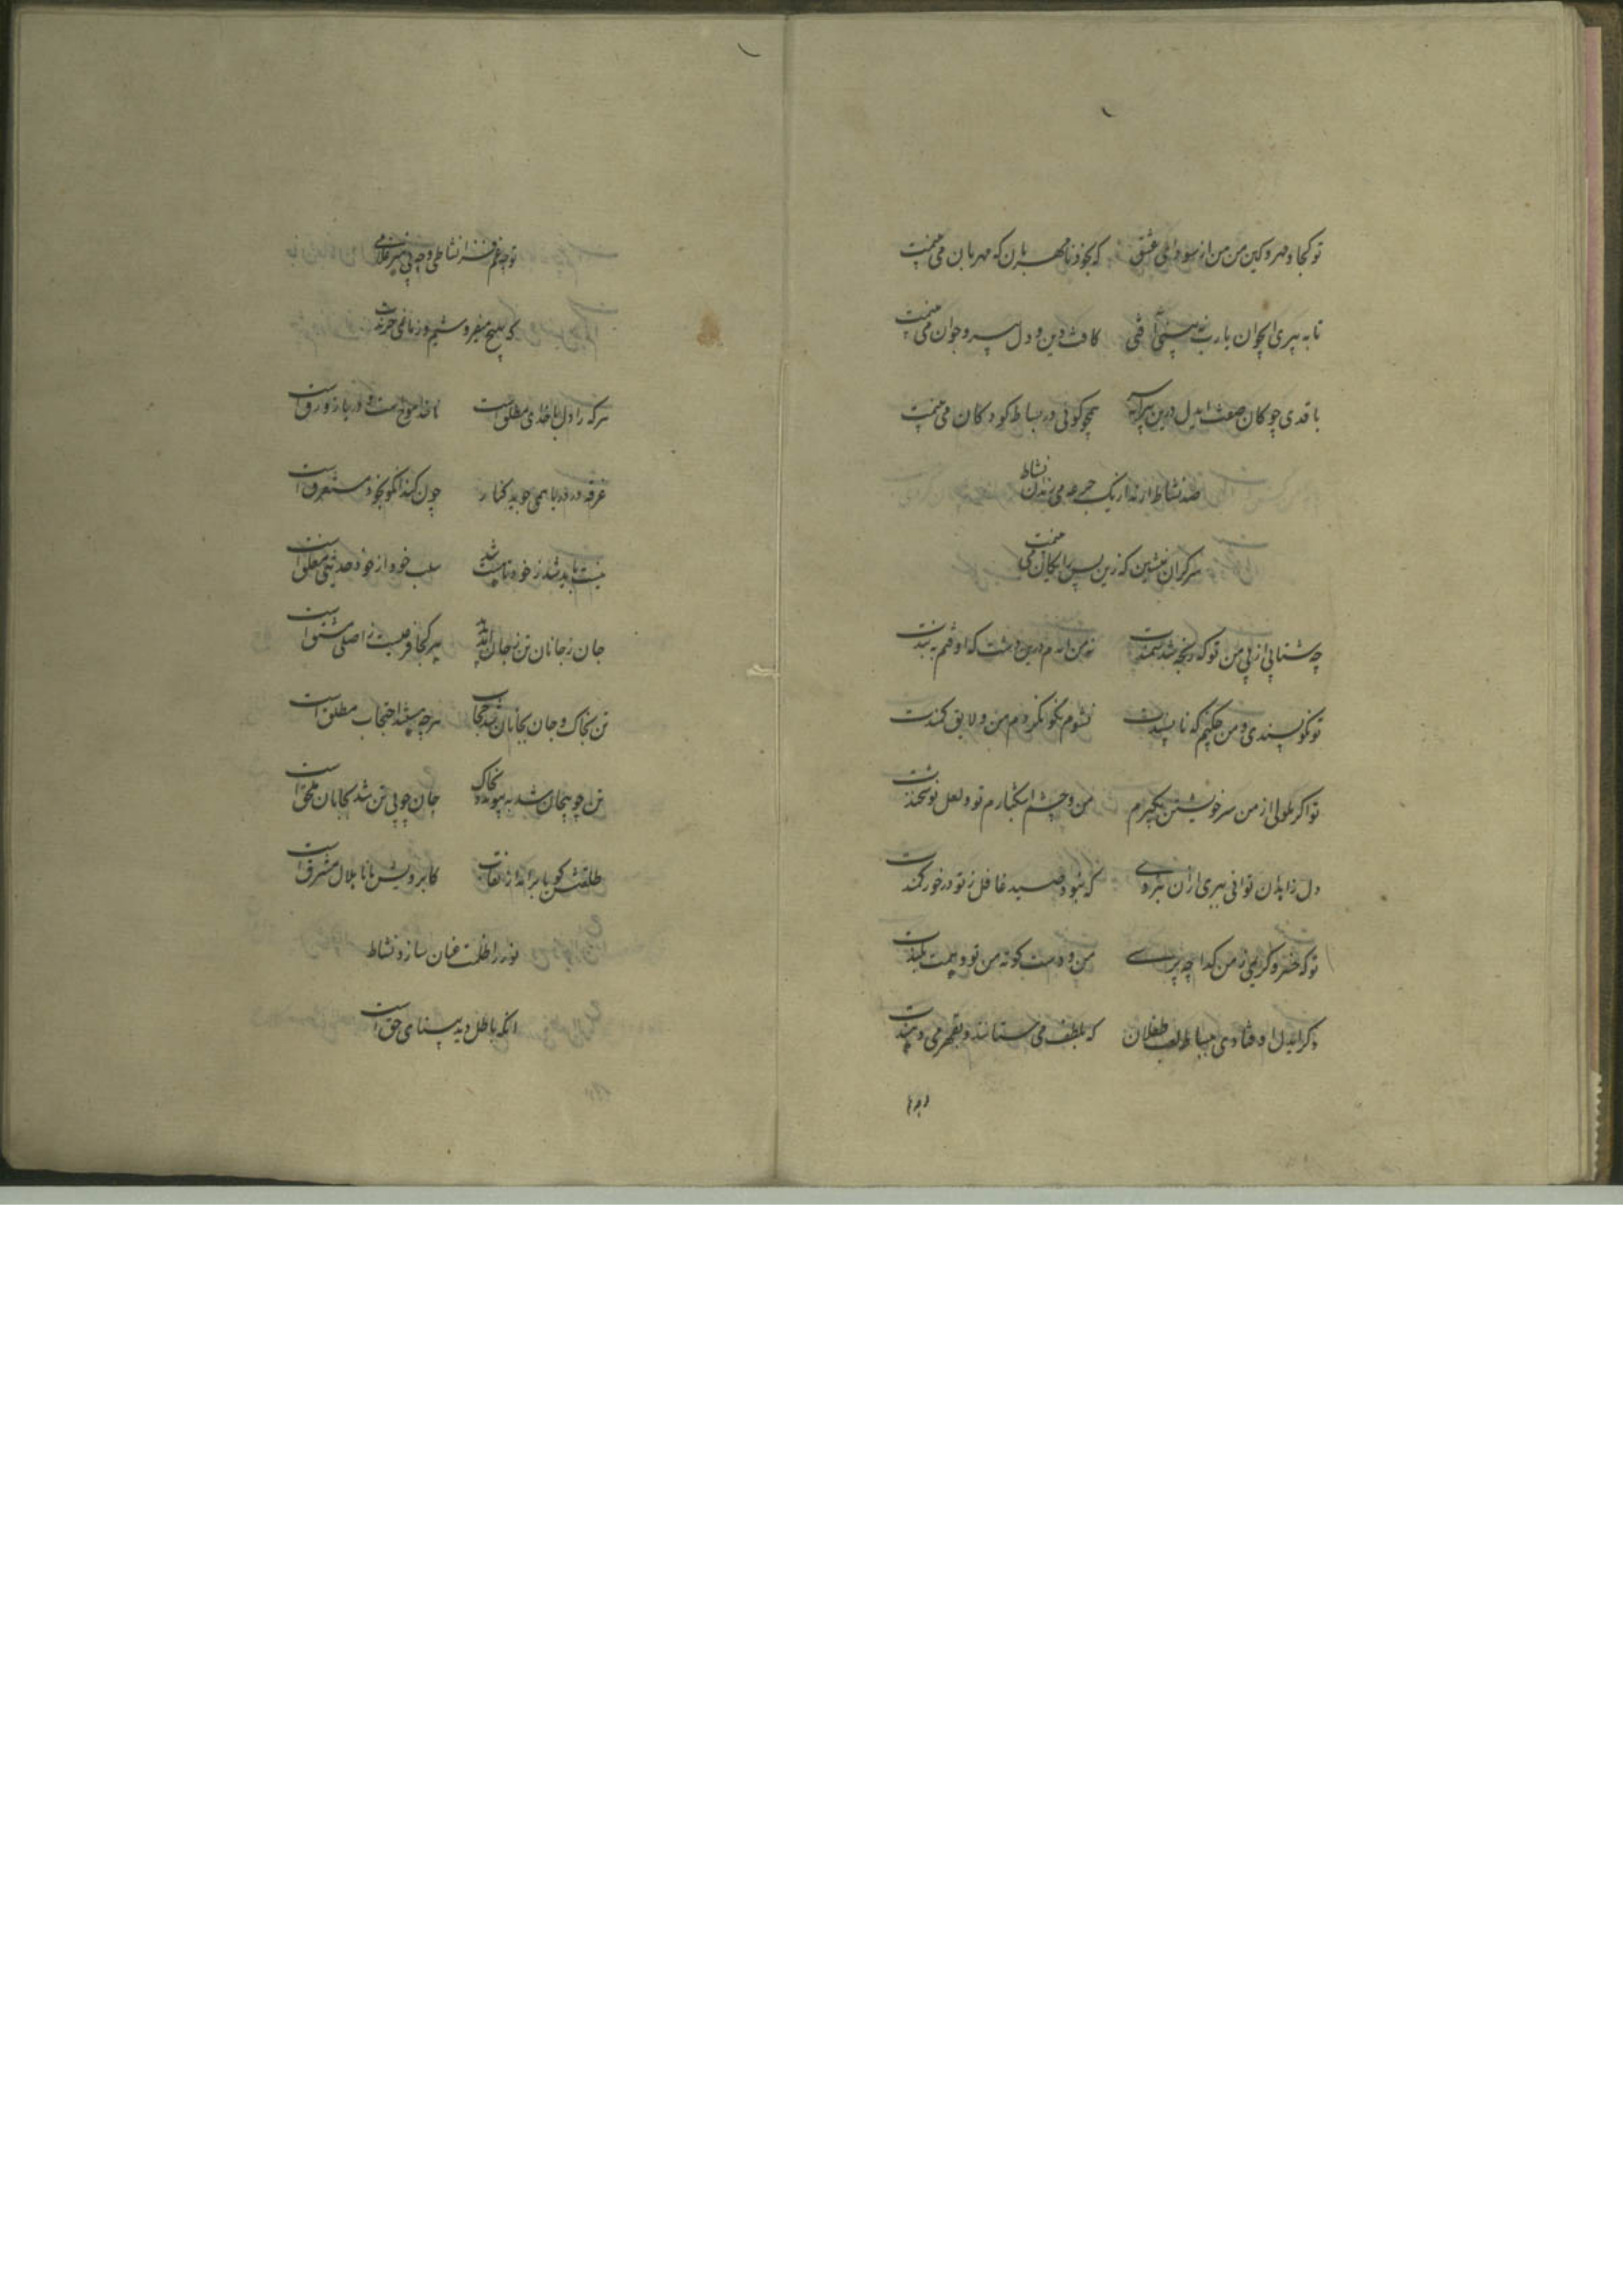 تو کجا و مهر و کین من من از سودای عشق که بخود نامهربان که مهربان می‌بینمت
تا به پیری ای جوان یارب نه بینی آفتی کافت دین و دل پیر و جوان می‌بینمت
با قدی چوکان صفت ایدل درین پیرانه سر همچو کوئی در بساط کودکان می‌بینمت
صد نشاط ارند از یک جرعه می رندان نشاط
سرگران بنشین که زین پس رایگان می‌بینمت
چه شتابی از پی من تو که رنجه شد سمندت نه من اندرین دشت که اوفتم به بندت
تو نکو پسندی و من چکنم که ناپسندت نشوم نکو نکردم من و لایق کمندت
تو اگر ملولی از من سر خویشتن بگیرم من و چشم اشکبارم تو و لعل نوشخندت
دل زاهدان توانی ببری ازان بنردی که نبود صید غافل ز تو در خور کمندت
تو که خسرو کریمی ز من کدا چه پرسی من و دست کوته من تو و همت بلندت
دگر ایدل اوفتادی ببساط لعب طفلان که بلطف می ستانند و بقهر می دهندت
تو چه غم فزا نشاطی و چه بی‌تمیز غلامی
که بهیچ میفروشیم و زما نمی خرندت
هر که را دل با خدای مطلق است ناخدا موج است و دریا زورق است
غرقه در دریا همی جوید کنار چون کند انکو بخود مستغرق است
نیست باید شد ز خود تا هست شد سلب خود از خود حدیثی مغلق است
جان ز جانان تن ز جان آمد پدید هر کجا فرعیست ز اصلی مشتق است
تن بخاک و جان بجانان شد حجاب هر چه بینند احتجاب مطلق است
تن چو بیجان شد به پیوندد بخاک جان چو بی تن شد بجانان ملحق است
طلعتش کو یا براندازد نقاب کابرویش با هلال مشرق است
نور را ظلمت عیان سازد نشاط
انکه باطل دید بینای حق است